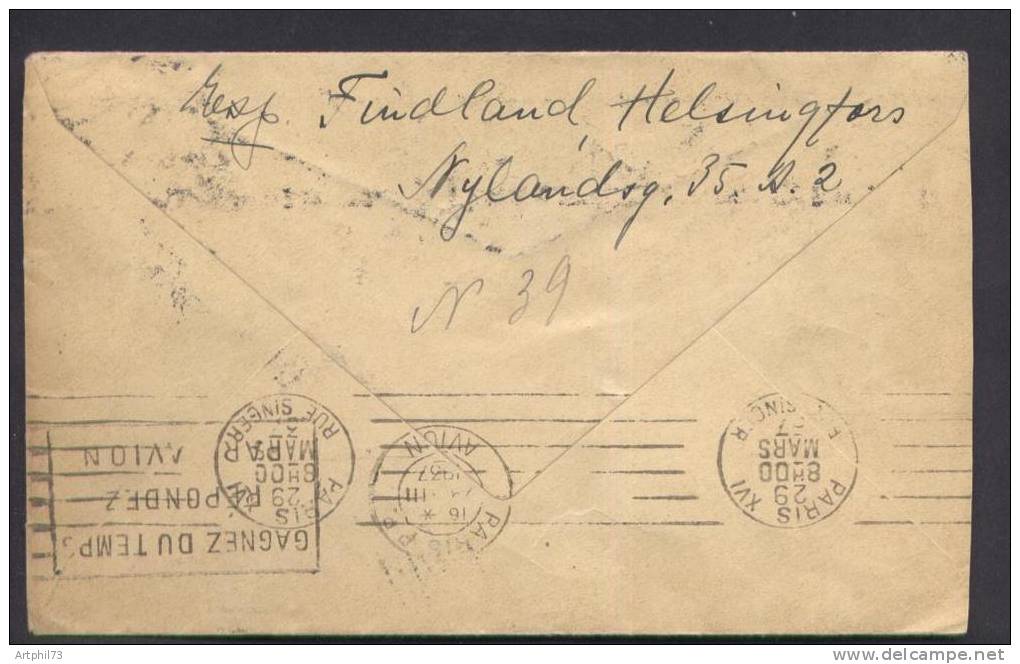 Exp. Findland, Helsingfors
Nylandsg. 35. A. 2
N 39
PARIS XVI
29
8H00
MARS
RUE SINGER
PARIS XVI
29
8H00
MARS
37
SINGER
PARIS
16 *
III
1937
AVION
GAGNEZ DU TEMPS
REPONDEZ
AVION
Artphil73
www.delcampe.net